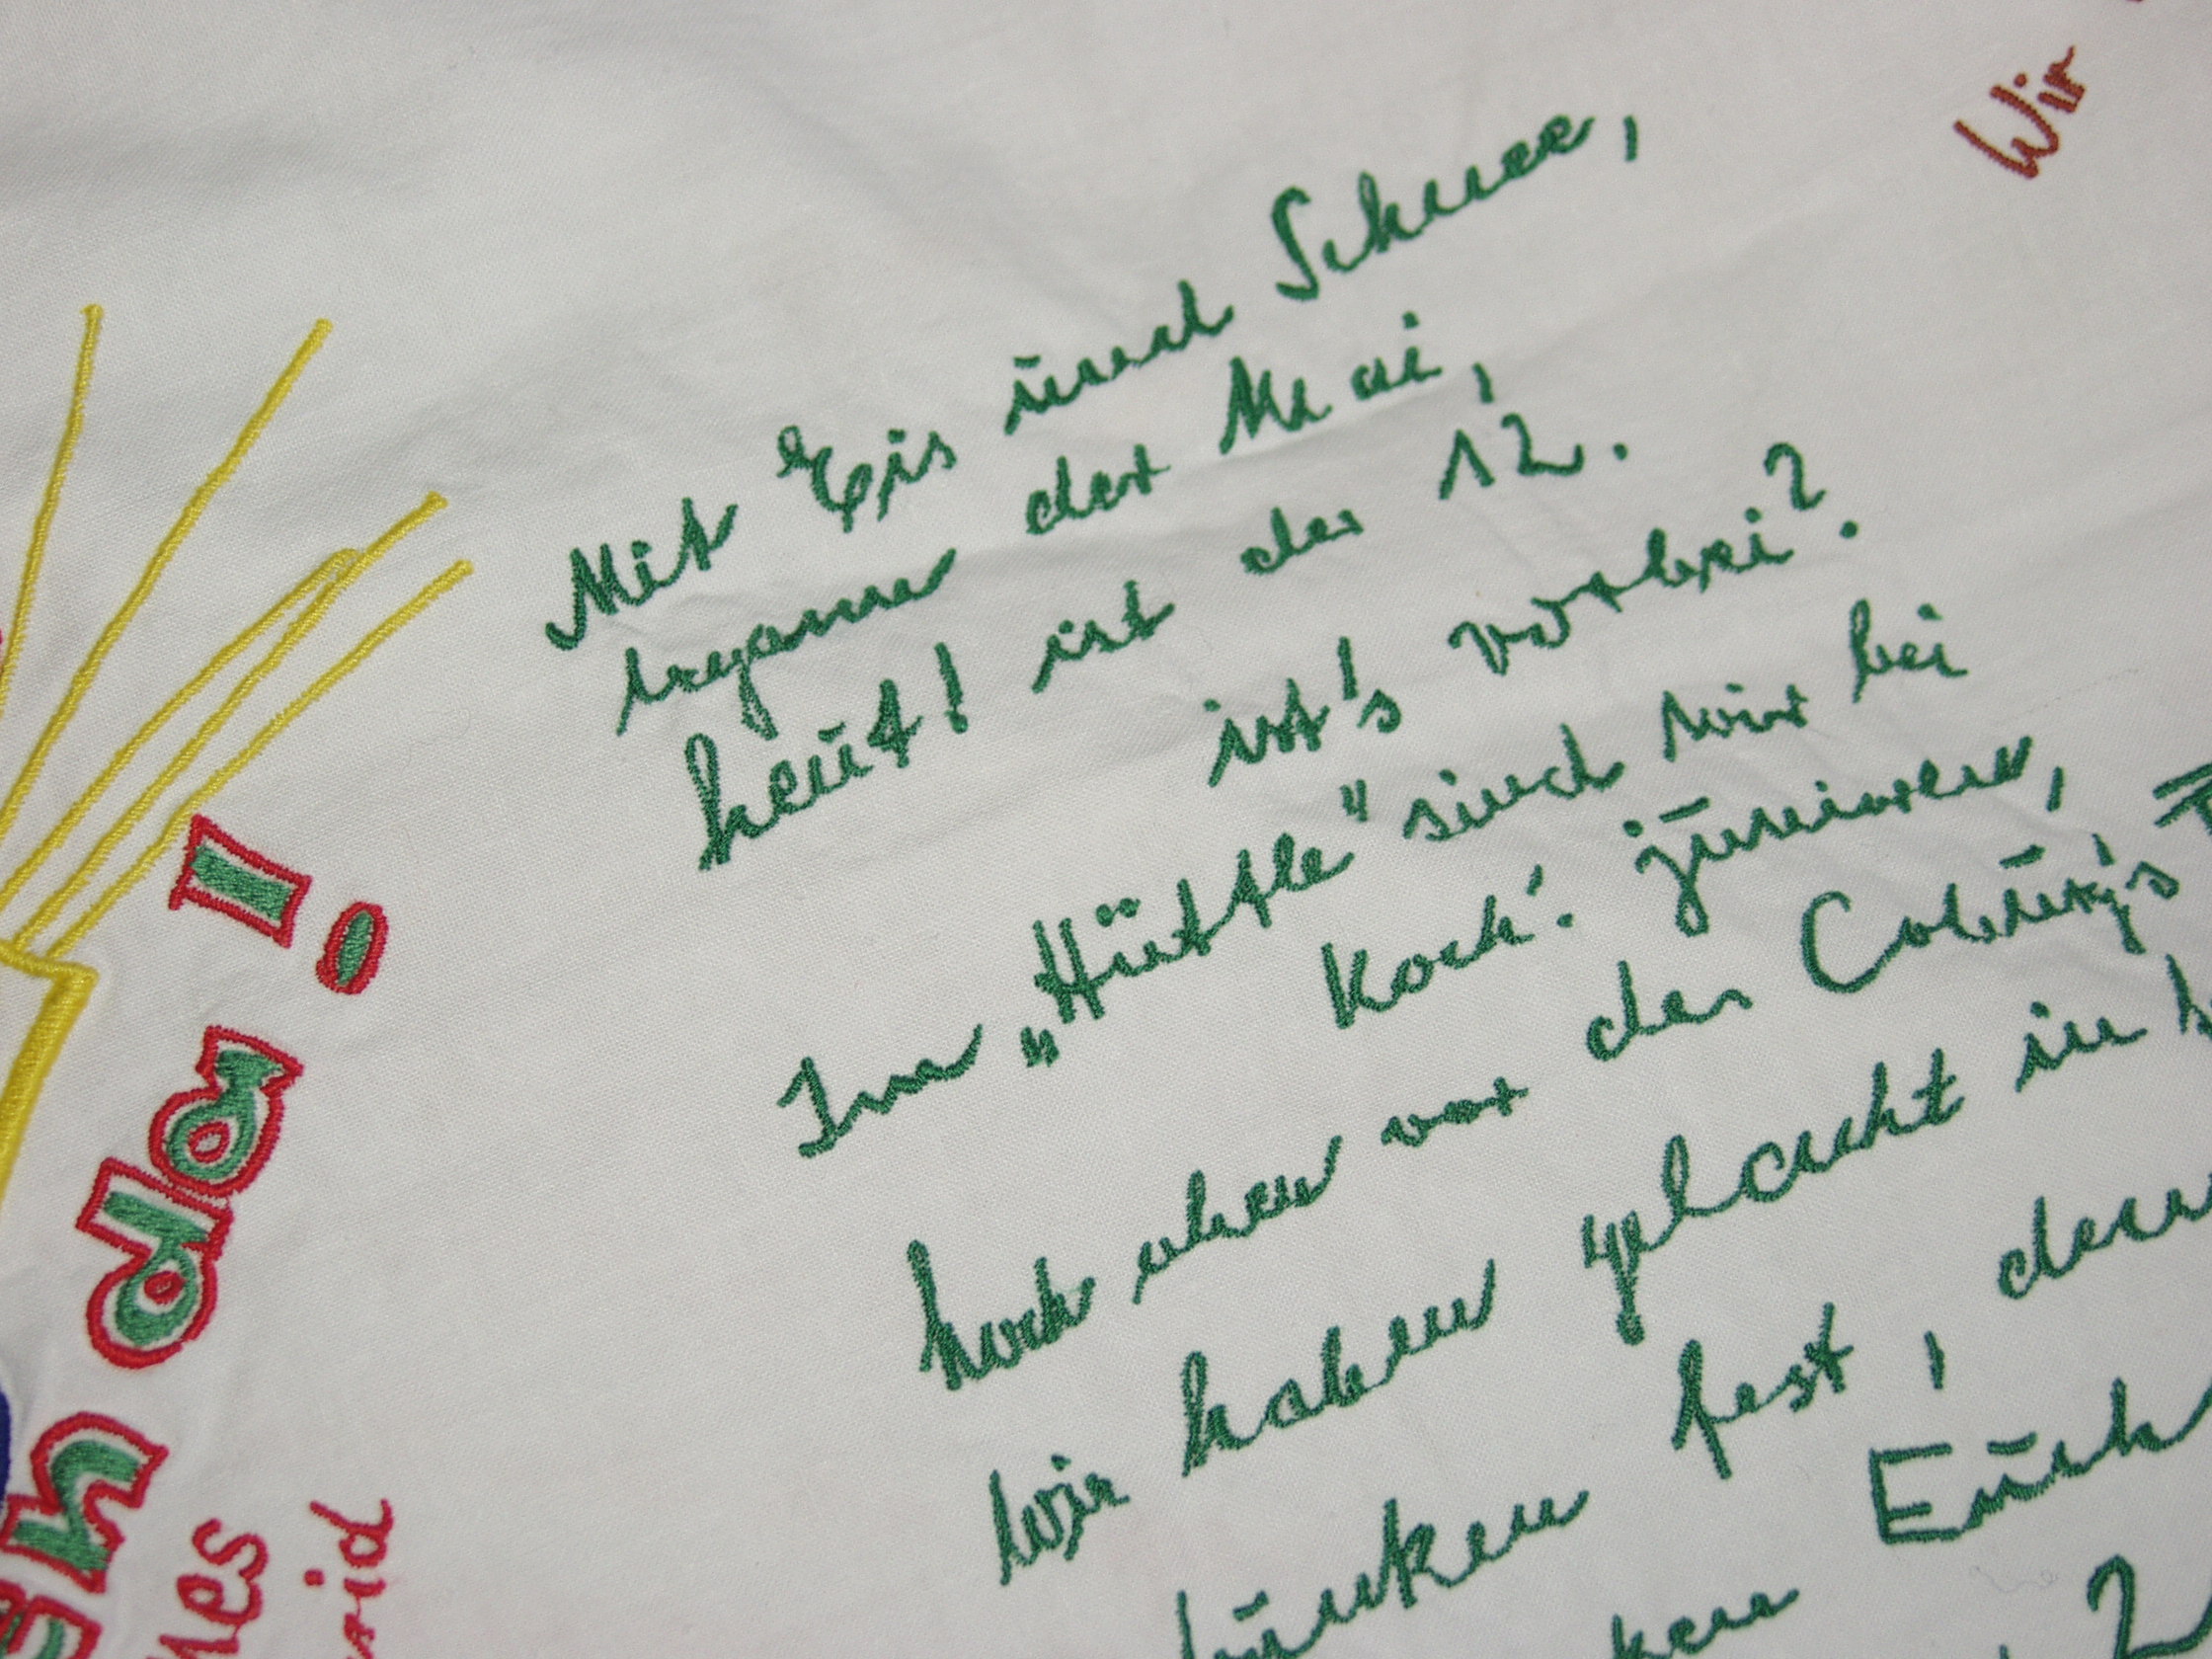 Mit Eis und Schnee,
begann der Mai,
heut! ist der 12.
ist's vorbei?
Im „Hüttle" sind wir bei
Koch'.
hoch oben vor der Coburg's
Wir haben gelacht in
fest, denn
Euch
2
da!
Wir